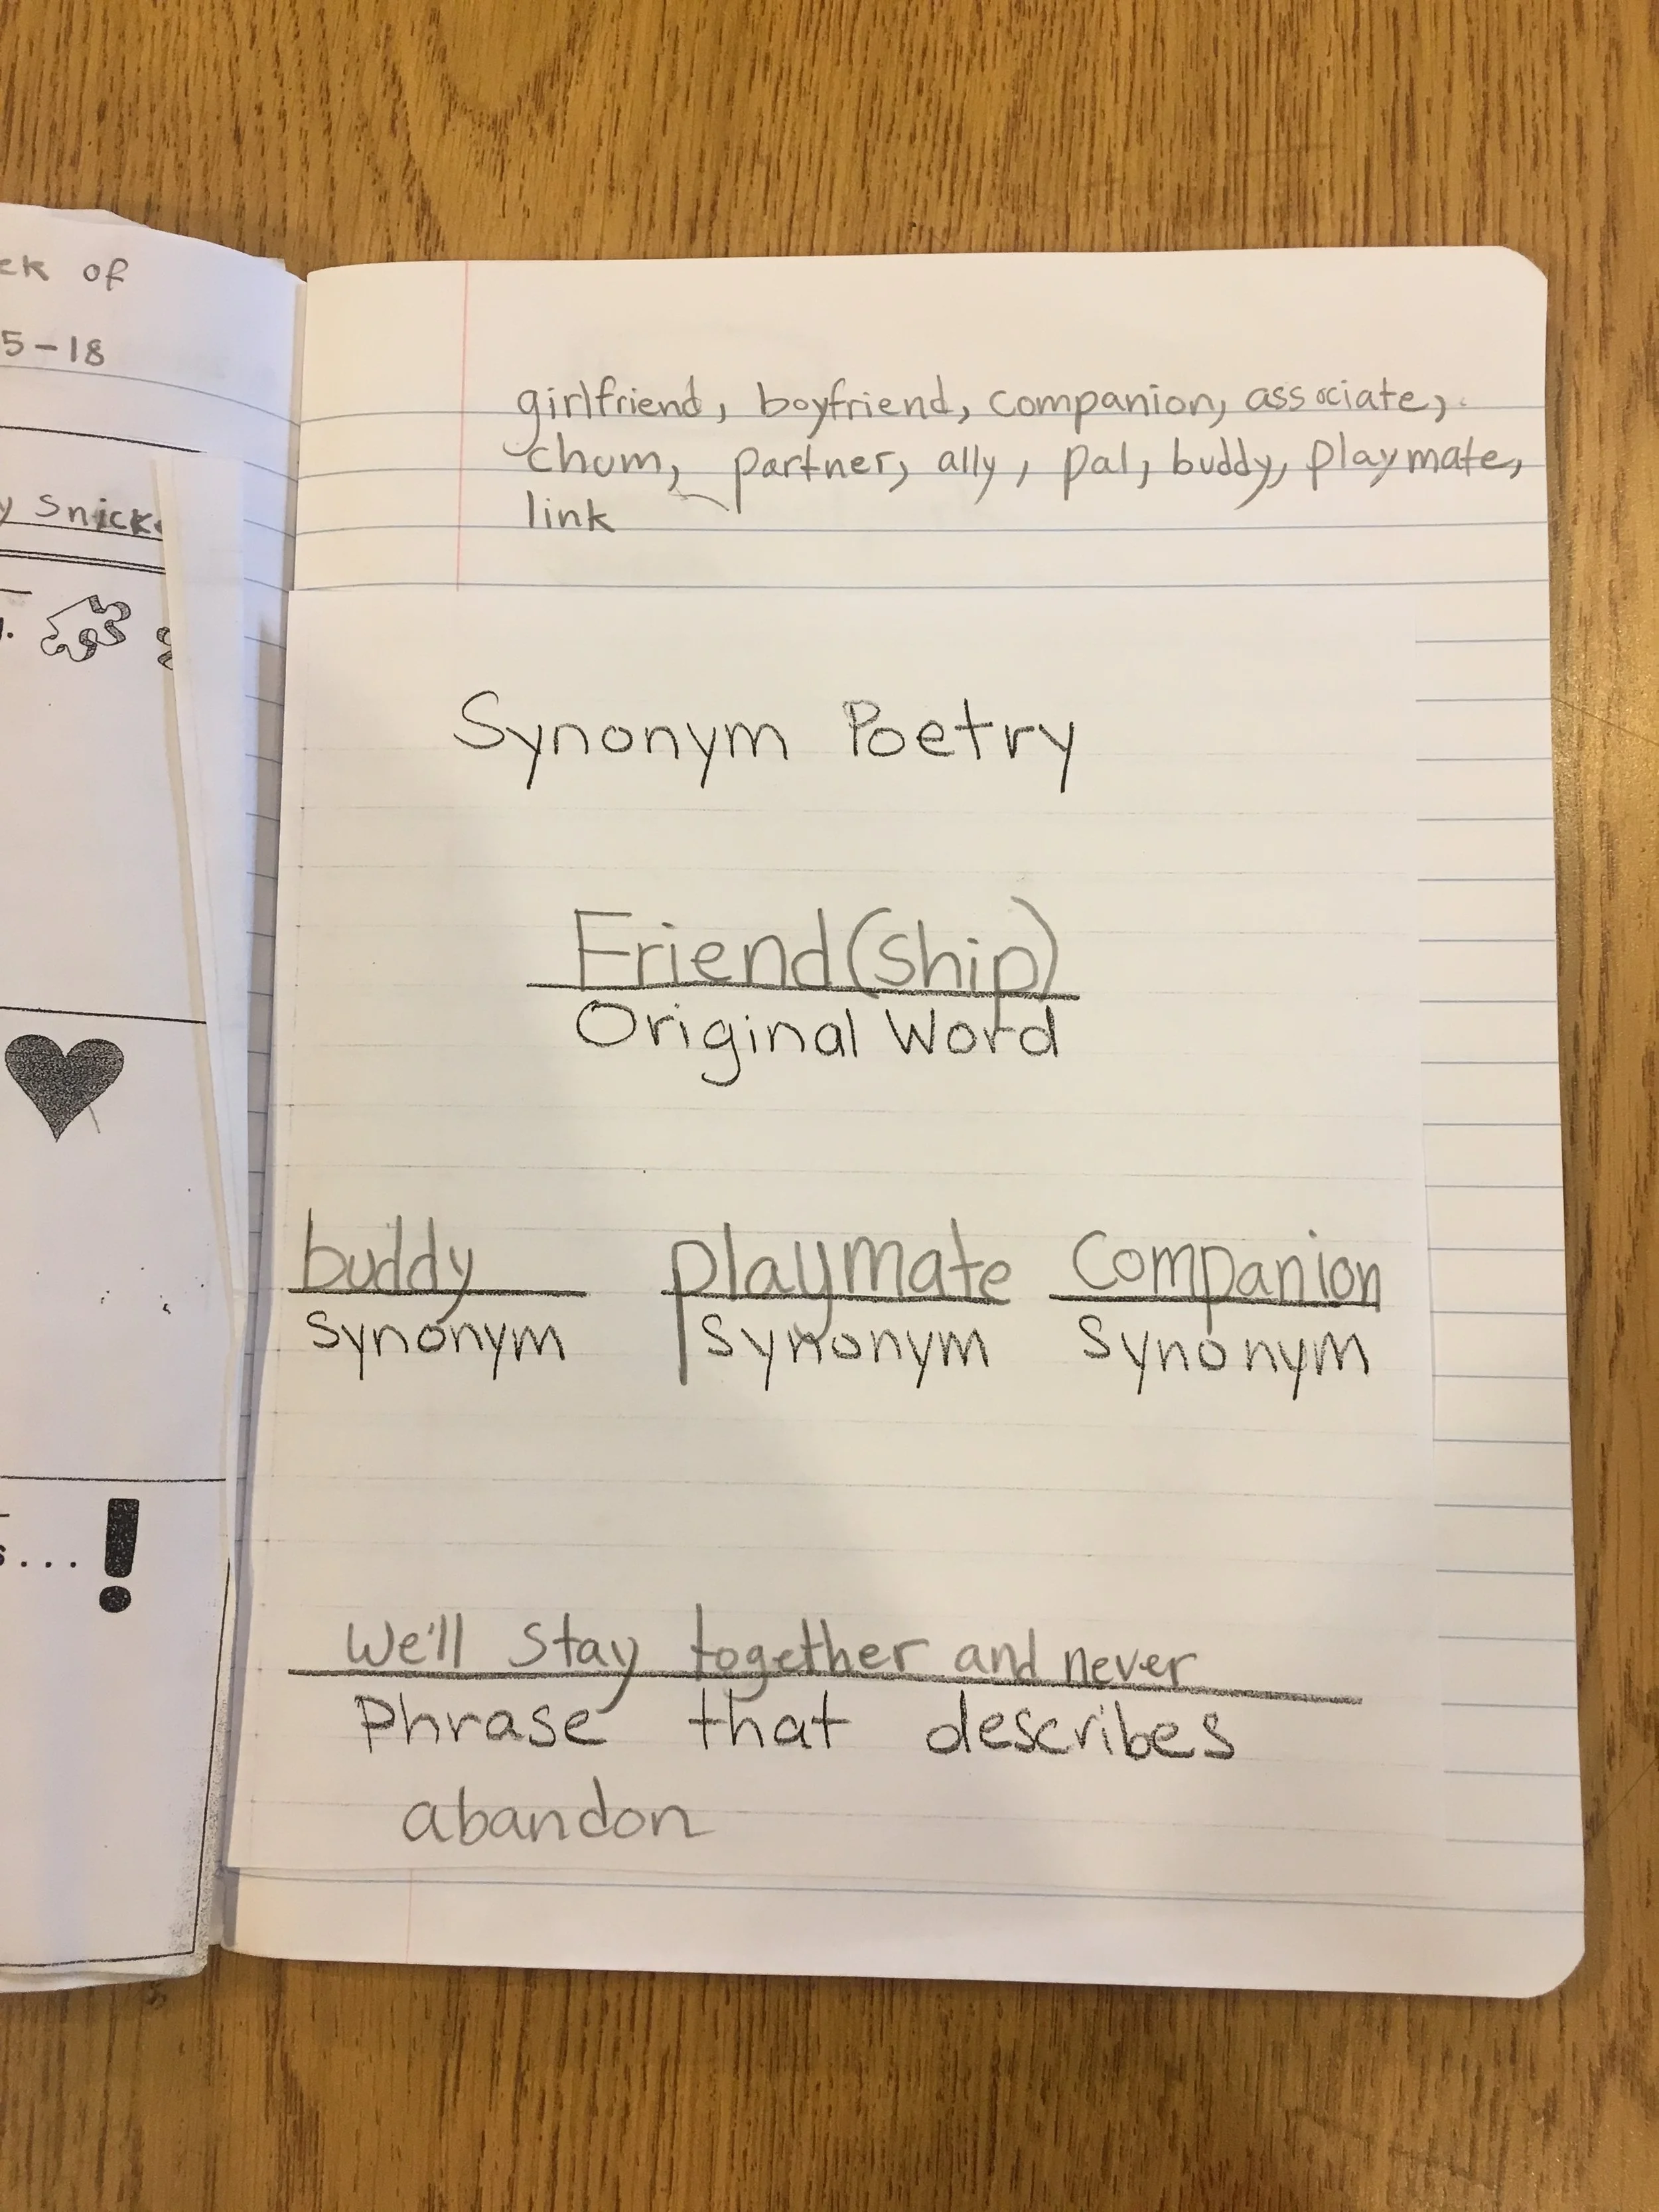 of
5-18
girlfriend, boyfriend, companion, associate,
chum, partner, ally, pal, buddy, playmate,
link
Synonym Poetry
Friend(ship)
Original Word
buddy playmate Companion
Synonym Synonym Synonym
We'll stay together and never
Phrase that describes
abandon